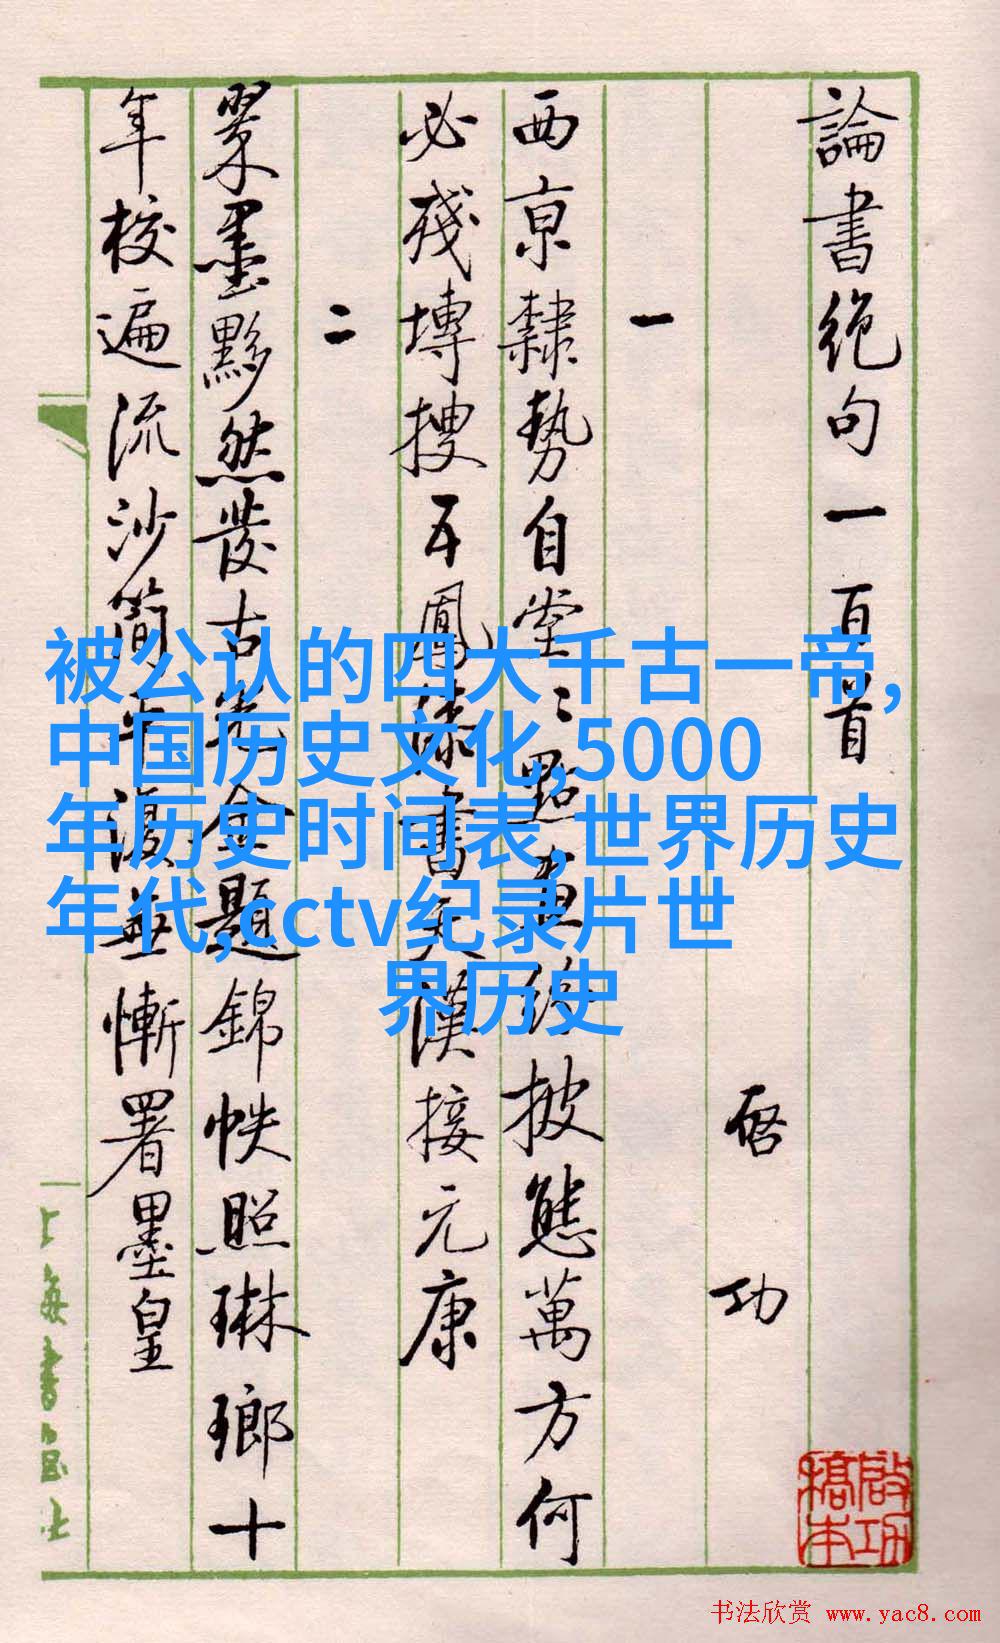 論書絕句一百首
启功
一
西京隸勢自堂〻點畫紛披態萬方何
必殘塼搜五鳳漆書天漢接元康
二
翠墨黟然發古光金題錦帙照琳瑯十
年校遍流沙簡平復無慚署墨皇
啟功稿本
被公认的四大千古一帝,
中国历史文化,5000
年历史时间表,世界历史
年代,cctv纪录片世
界历史
书法欣赏 www.yac8.com